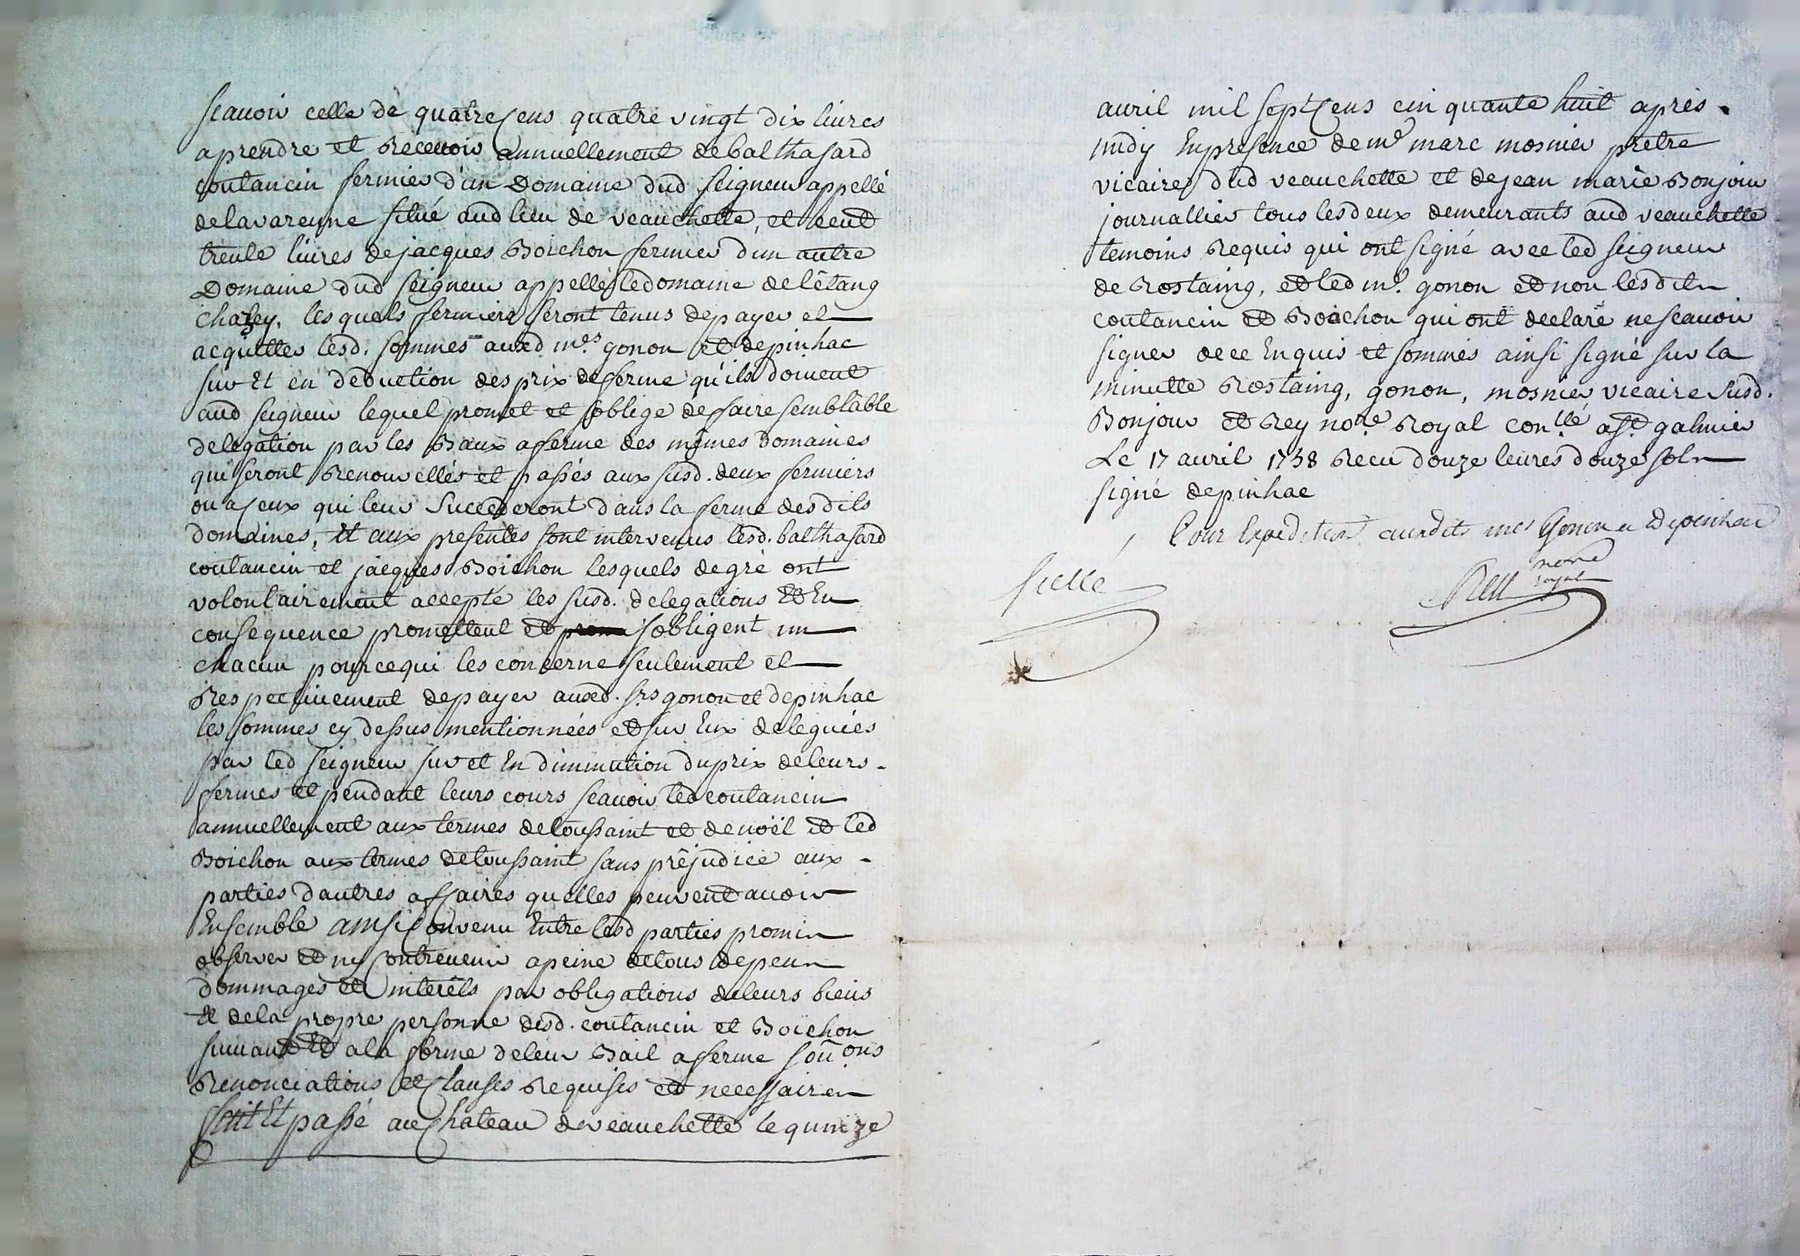 scauoir celle de quatre cens quatre vingt dix liures
aprendre et Receuoir annuellement de balthasard
coutancin fermier d'un Domaine dud seigneur appellé
delavarenne situé aud lieu de veauchette, et cent
trente liures de jacques Boichon fermier dun autre
Domaine dud seigneur appellé ledomaine de l'étang
chazey, lesquels fermiers seront tenus depayer et
acquitter lesd. sommes auxd. mes. gonon et depinhac
sur Et en déduction des prix deferme qu'ils doivent
aud seigneur lequel promet et s'oblige deffaire semblable
delegation par les Baux aferme des mêmes Domaines
qui seront Renouvellés et passés aux susd. deux fermiers
ou a ceux qui leur succederont dans la ferme desdits
domaines, Et aux presentes sont intervenus lesd. balthasard
coutancin et jacques Boichon lesquels degré ont
volontairement accepté les susd. delegations Et En
consequence promettent et s'obligent un
chacun pource qui les concerne seulement et
Respectivement depayer auxd. srs gonon et depinhac
les sommes cy dessus mentionnées et sur Eux deleguées
par led seigneur sur et En diminution duprix deleurs
fermes et pendant leurs cours scauoir led coutancin
annuellement aux termes detoussaint et denoël et led
Boichon aux termes detoussaint sans préjudice aux
parties d'autres affaires quelles peuvent auoir
Ensemble ainsi Convenu Entre lesd parties promis
observer et ny contrevenir apeine detous depens
dommages et interêts par obligations deleurs biens
et dela propre personne desd. coutancin et Boichon
suivant Et ala forme deleur Bail aferme soûons
Renonciations et Clauses Requises et necessaires
fait Et passé au Chateau deveauchette le quinze
auril mil sept Cens cinquante huit après
midy Enpresence de mre marc mosnier prêtre
vicaire dud veauchette et dejean marie Bonjour
journallier tous lesdeux demeurants aud veauchette
temoins Requis qui ont signé avec led seigneur
de Rostaing, et led me. gonon et non lesdits
coutancin et Boichon qui ont declaré nescauoir
signer dece Enquis et sommés ainsi signé sur la
minutte Rostaing, gonon, mosnier vicaire susd.
Bonjour et Rey nore Royal conllé a st. galmier
Le 17 auril 1758 Recu douze leures douze sols
signé depinhac
Pour Expedition auxdits mes Gonon et Depinhac
scellé
Rey
notre
royal